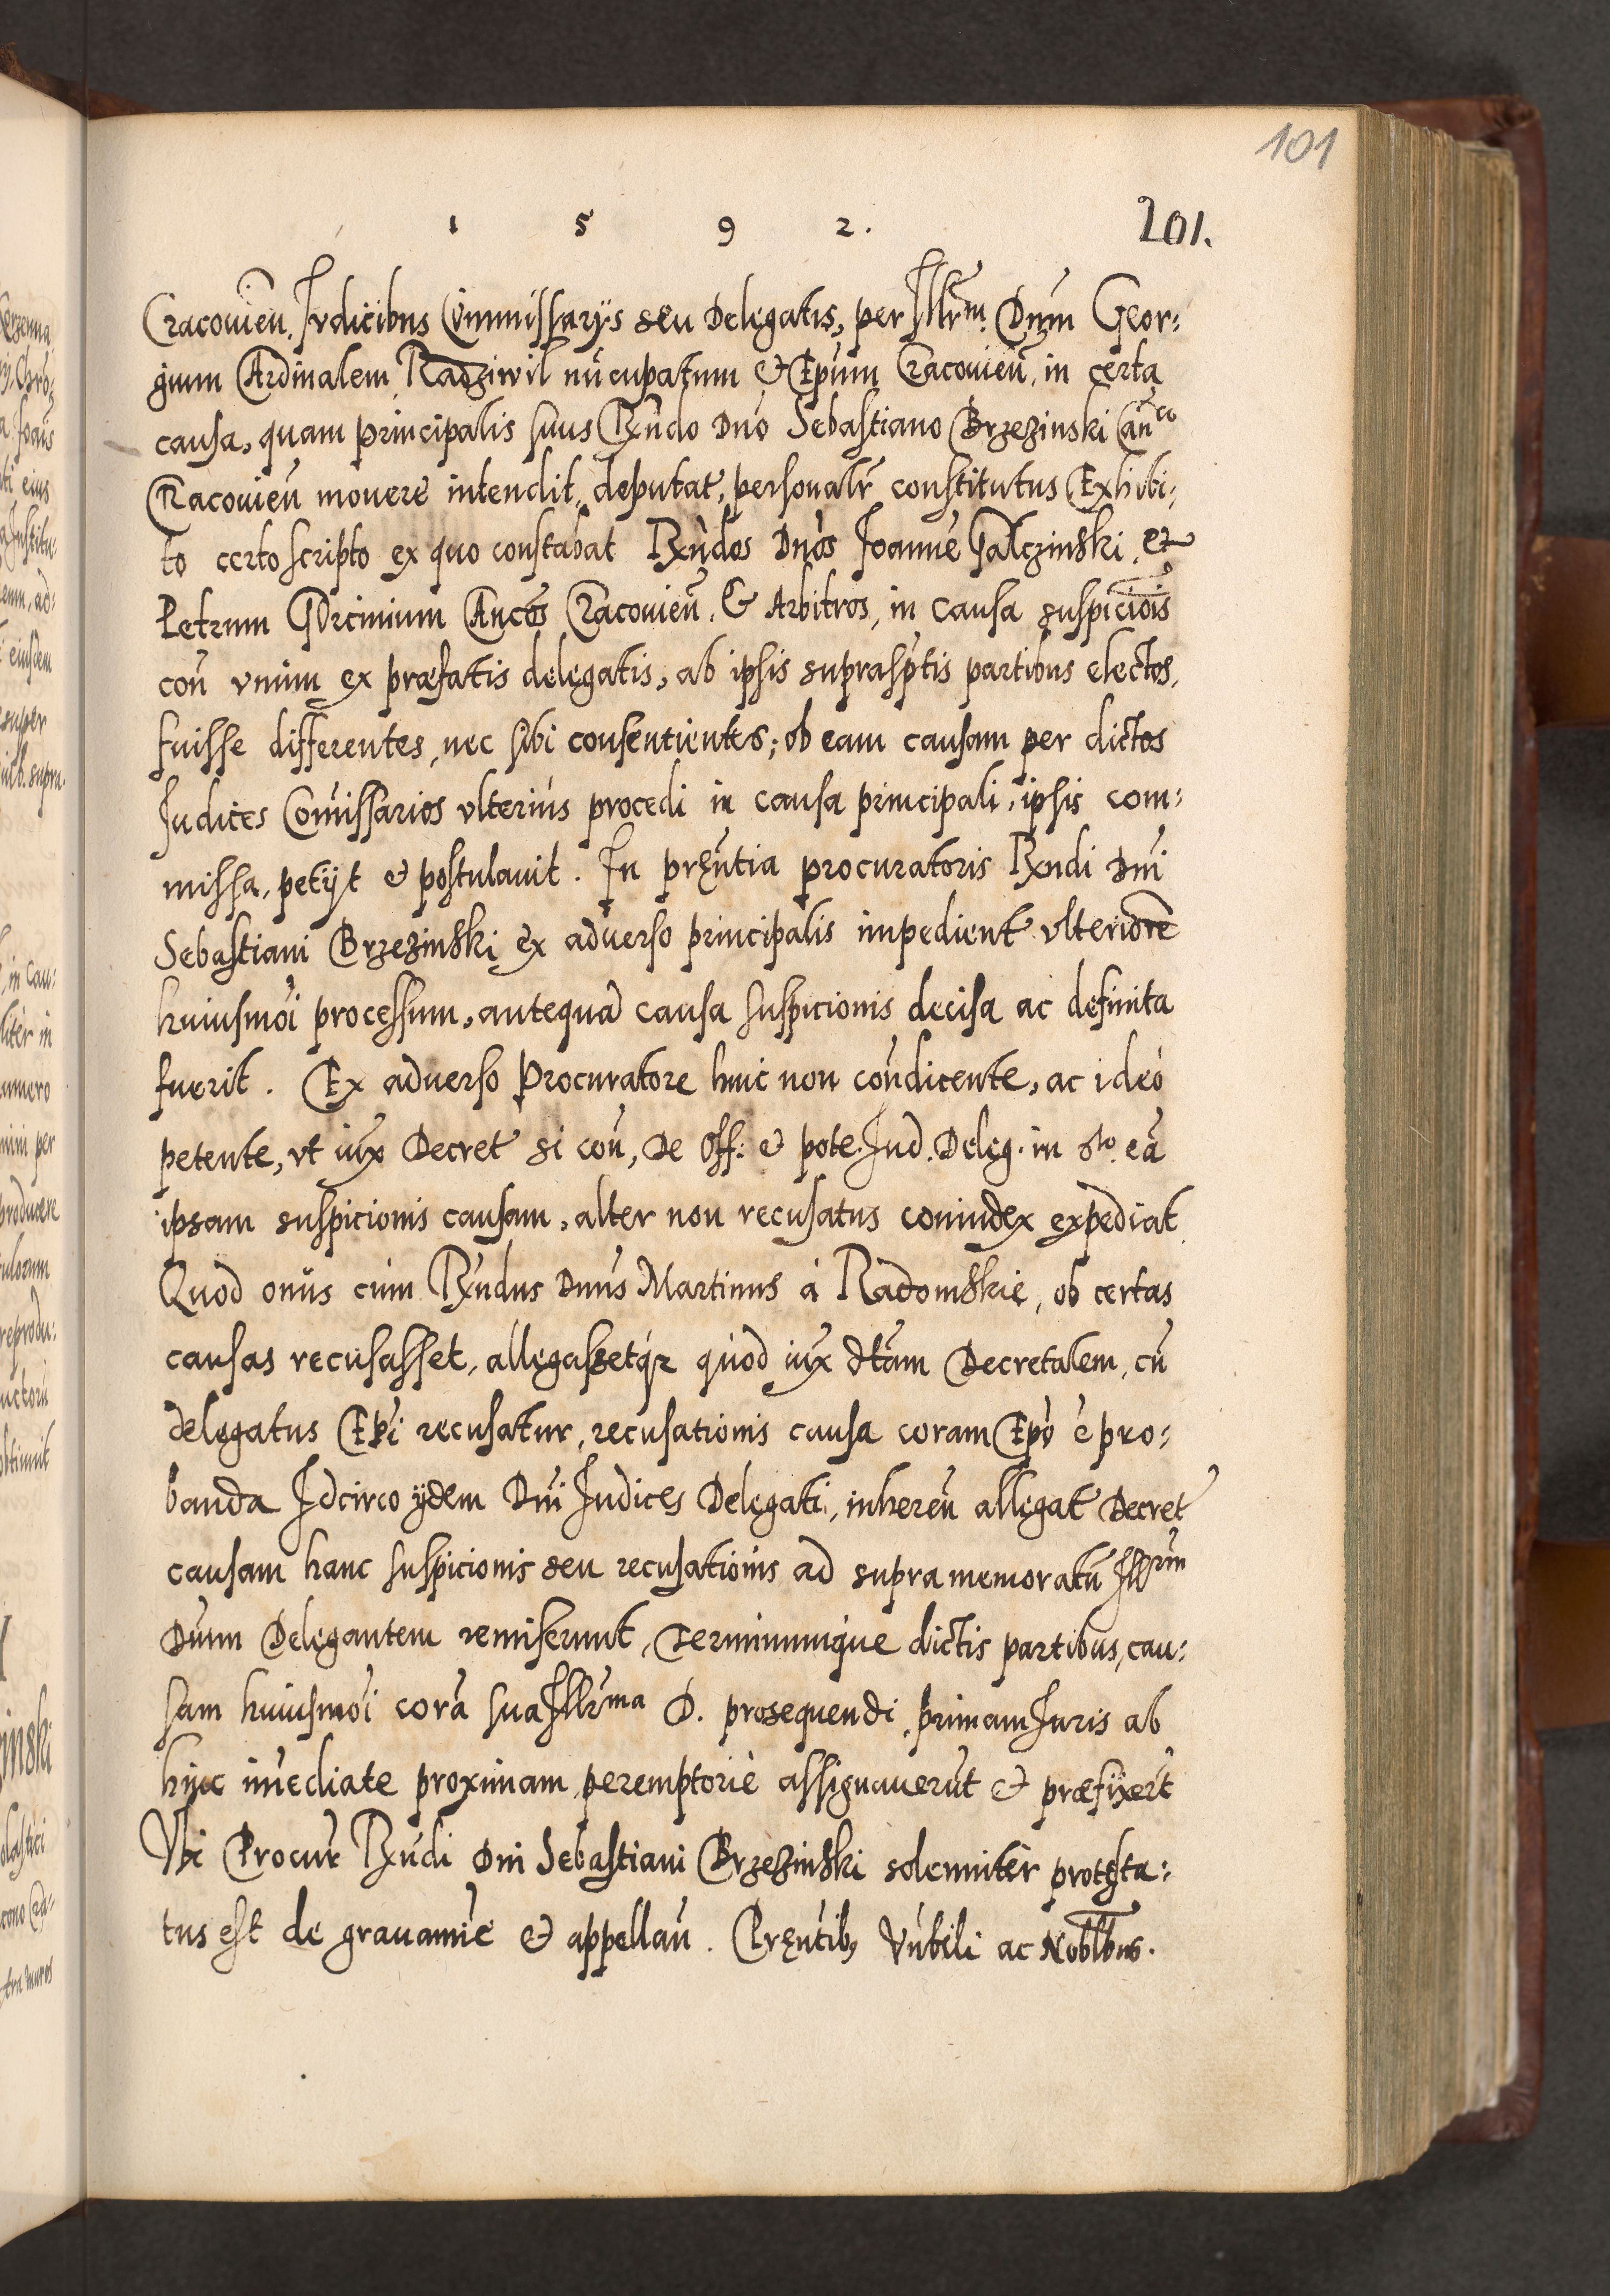 101
1 5 9 2. 201.
Cracouien̄. Judicibus Com̃missarijs seu Delegatis, per Illr̃m Dnm̃ Geor:
gium Cardinalem Radziwil nũcupatum & Epũm Cracouien̄, in certa
causa, quam principalis suus Rx̃ndo Dnõ Sebastiano Brzezinski Can̄co
Cracouien̄ mouere intendit, deputat, personalr̃ constitutus Exhibi:
to certo scripto ex quo constabat Rx̃ndos Dnõs Joannē Galczinski, et
Petrum Gorcinium Cancõs Cracouien̄. & Arbitros, in Causa suspiciõis
coñ vnum ex præfatis delegatis, ab ipsis suprasp̃tis partibus electos,
fuisse differentes, nec sibi consentientes; ob eam causam per dictos
Judices Com̃issarios vlterius procedi in causa principali, ipsis com:
missa, petijt & postulauit. In pręñtia procuratoris Rx̃ndi Dnĩ
Sebastiani Brzezinski ex aduerso principalis impedient vlteriorē
huiusmõi processum, antequã causa suspicionis decisa ac definita
fuerit. Ex aduerso Procuratore huic non coñdicente, ac ideò
petente, vt iux̃ Decret si coñ, De Off: & pote. Jud. Deleg. in 6to. eã
ipsam suspicionis causam, alter non recusatus coniudex expediat.
Quod onũs cùm Rx̃ndus Dnũs Martinus à Radomskie, ob certas
causas recusasset, allegassetqz quòd iux̃ dt̃am Decretalem, cũ
delegatus Ep̃i recusatur, recusationis causa coram Ep̃o ẽ pro:
banda Idcirco ijdem Dnĩ Judices Delegati, inhereñ allegat Decret
causam hanc suspicionis seu recusationis ad supra memoratũ Illrm̃
Dnũm Delegantem remiserunt, Terminumque dictis partibus, cau:
sam huiusmõi corã sua Illr̃ma D. prosequendi, primam Juris ab
hinc im̃ediate proximam peremptoriè assignauerũt & præfixerũt
Vbi Procur̃ Rx̃ndi Dnĩ Sebastiani Brzezinski solemniter protesta:
tus est de grauamiñe & appellañ. Pręñtibꝫ Vñbili ac Nobl̃bus.